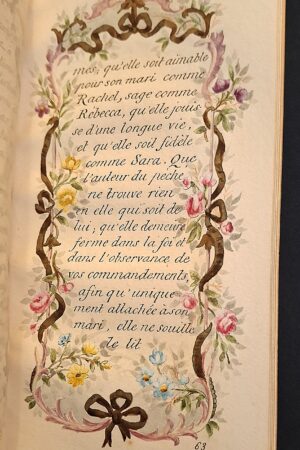 mes; qu'elle soit aimable
pour son mari comme
Rachel, sage comme
Rébecca, qu'elle jouis
se d'une longue vie,
et qu'elle soit fidèle
comme Sara. Que
l'auteur du peche
ne trouve rien
en elle qui soit de
lui; qu'elle demeure
ferme dans la foi et
dans l'observance de
vos commandements,
afin qu'unique
ment attachée à son
mari, elle ne souille
le lit
63